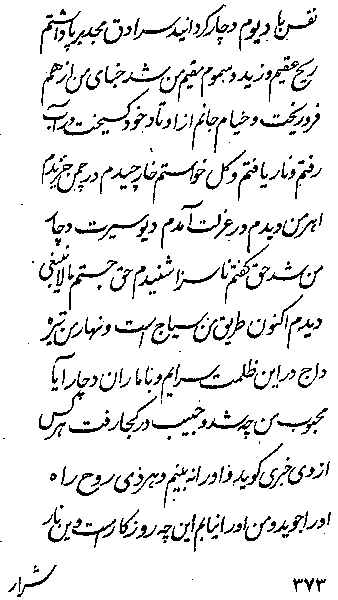 نفس با دیوم دچار کردانید سرادق مجد بر پا داشتم
ریح عقیم وزید و سموم مقیم من شد خبای من از هم
فرو ریخت و خیام جانم از اوتاد خود کسیخت در آب
رفتم و نار یافتم و کل خواستم خار چیدم در چمن
اهرمن دیدم در عزلت آمدم دیو سیرت دچار
من شد حق کفتم ناسزا شنیدم حق جستم مالا ینبغی
دیدم اکنون طریق من سیاج است و نهار من تیره
داج در این ظلمت سرایم و با ماران دچار آیا
محبوب من چه شد و حبیب در کجا رفت هر کس
از وی خبری کوید و او را نه بینم و هر ذی روح راه
او را جوید و من او را نیابم این چه روز کار است و این نار
۳۷۳
شرار